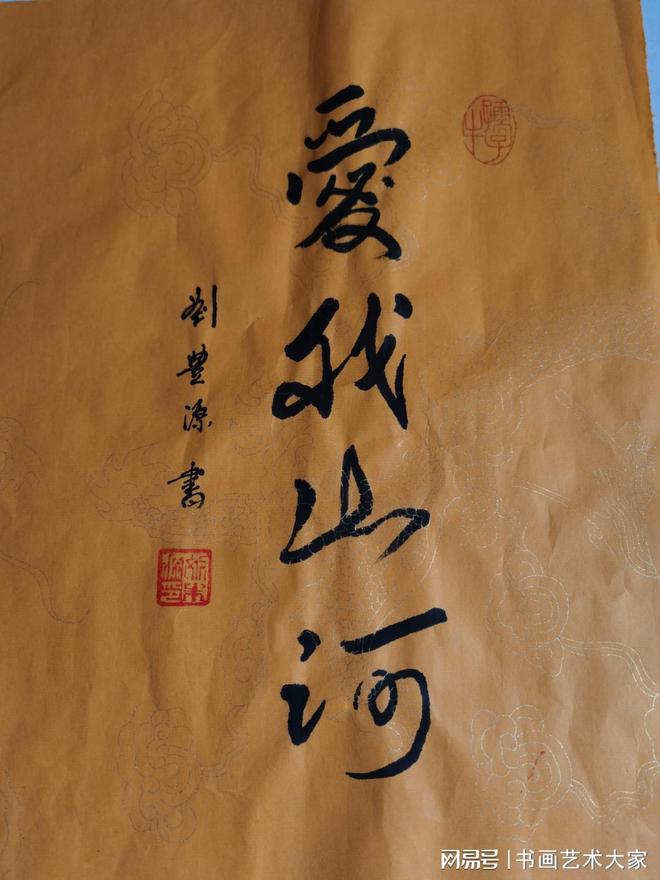 愛我山河
劉豊源書
网易号|书画艺术大家